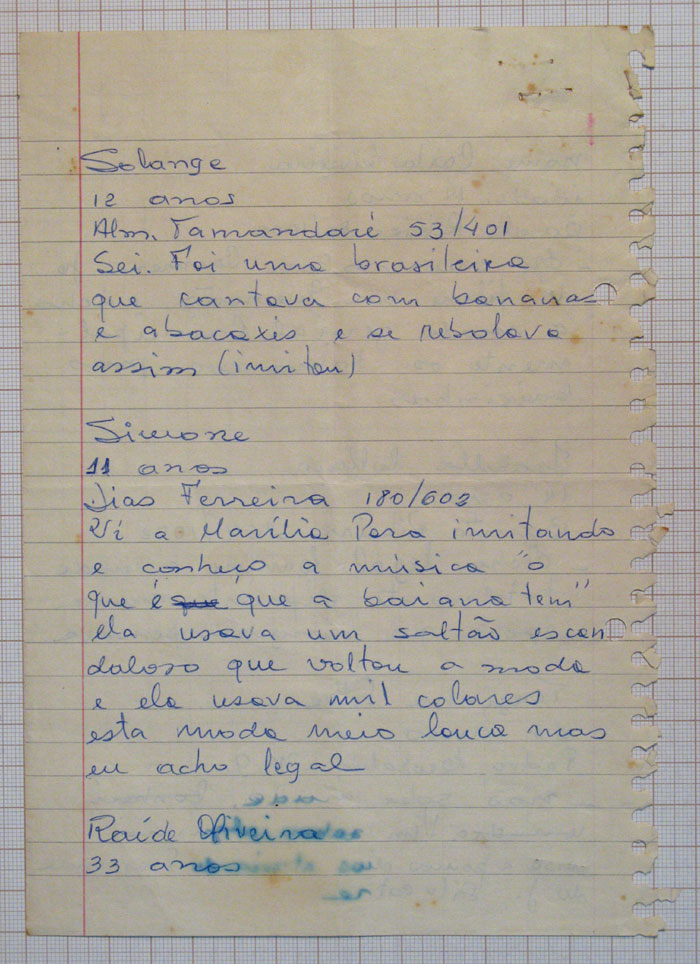 Solange
12 anos
Alm. Tamandaré 53/401
Sei. Foi uma brasileira
que cantava com bananas
e abacaxis e se rebolava
assim (imitou)
Simone
11 anos
Dias Ferreira 180/602
Vi a Marília Pera imitando
e conheço a música "o
que é que que a baiana tem"
ela usava um saltão escan
daloso que voltou a moda
e ela usava mil colares
esta moda meio louca mas
eu acho legal
Raíde Oliveira
33 anos